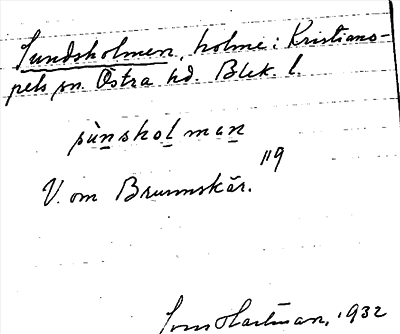 Sundsholmen, holme i Kristiano-
pels sn. Östra hd. Blek. l.
sùnsholman
V. om Brunnskär. 119
Hartman, 1932